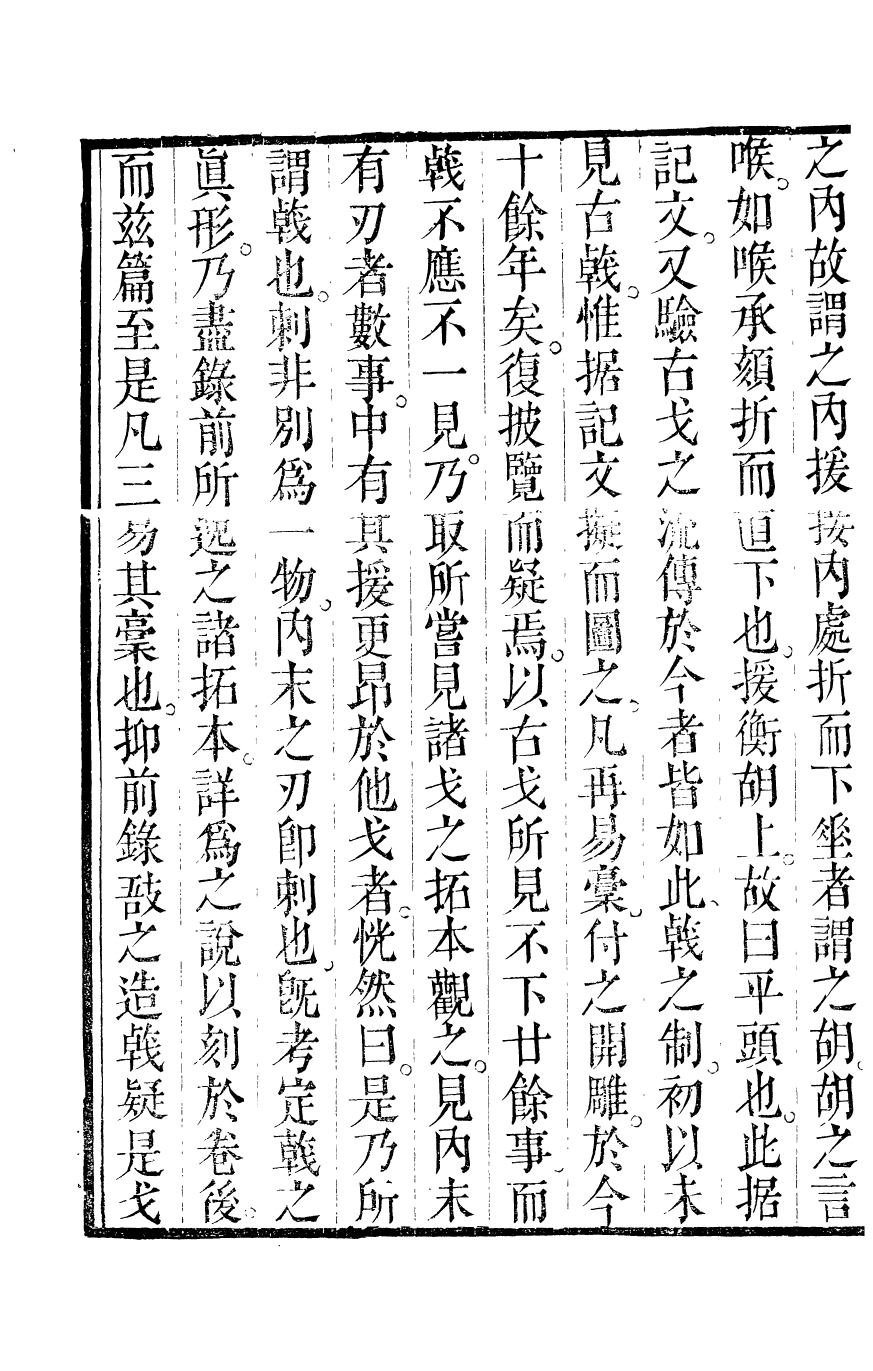 之內故謂之內援接內處折而下𡸁者謂之胡胡之言
喉。如喉承頦折而直下也。援衡胡上。故曰平頭也。此据
記文。又驗古戈之流傳於今者皆如此。𢧢之制。初以未
見古𢧢。惟据記文擬而圖之。凡再易稾。付之開雕。於今
十餘年矣。復披覽而疑焉。以古戈所見不下廿餘事而
𢧢不應不一見。乃取所嘗見諸戈之拓本觀之。見內末
有刃者數事。中有其援更昂於他戈者。恍然曰。是乃所
謂𢧢也。刺非別爲一物。內末之刃卽刺也。旣考定𢧢之
眞形。乃盡錄前所
之諸拓本。詳爲之說以刻於卷後。
而茲篇至是凡三易其稾也。抑前錄敔之造𢧢疑是戈